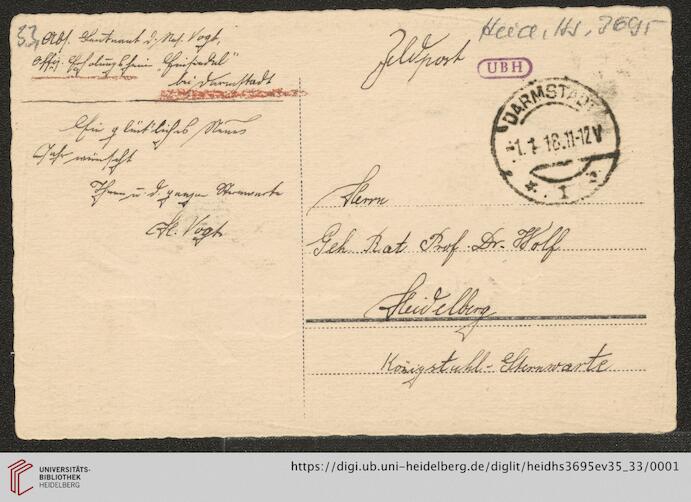 33,
Heid. Hs. 3695
Abs. Leutnant d. Res. Vogt,
Offiz. Erholungsheim "Einsiedel"
bei Darmstadt
Feldpost
UBH
DARMSTADT
1.1.18.11-12V
* 1
Ein glückliches Neues
Jahr wünscht
Ihnen u. d. ganzen Sternwarte
H. Vogt
Herrn
Geh. Rat Prof. Dr. Wolf
Heidelberg
Königstuhl-Sternwarte
UNIVERSITÄTS-
BIBLIOTHEK
HEIDELBERG
https://digi.ub.uni-heidelberg.de/diglit/heidhs3695ev35_33/0001